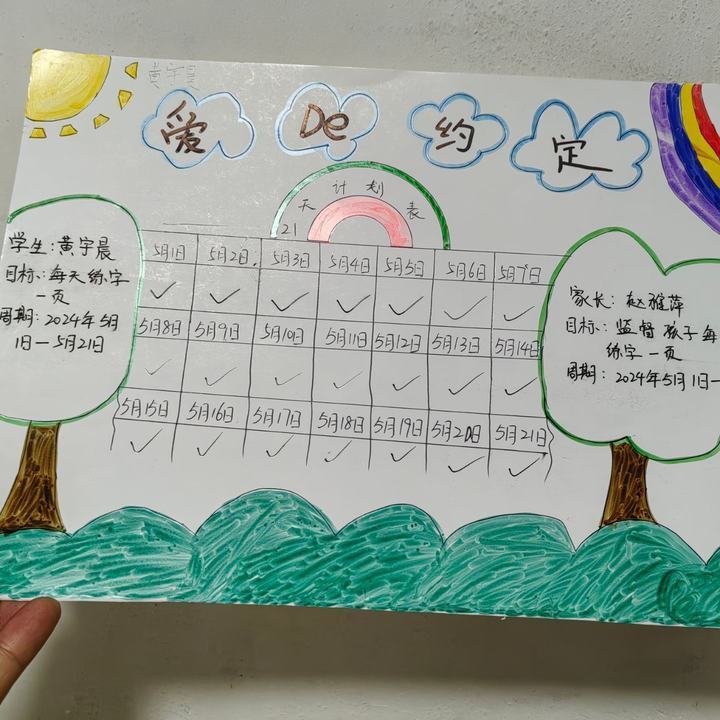 爱 De 约 定
21天计划表
学生:黄宇晨
目标:每天练字
一页
周期:2024年5月
1日—5月21日
5月1日 5月2日. 5月3日 5月4日 5月5日 5月6日 5月7日
✓ ✓ ✓ ✓ ✓ ✓ ✓
5月8日 5月9日 5月10日 5月11日 5月12日 5月13日 5月14日
✓ ✓ ✓ ✓ ✓ ✓ ✓
5月15日 5月16日 5月17日 5月18日 5月19日 5月20日 5月21日
✓ ✓ ✓ ✓ ✓ ✓ ✓
家长:赵雅萍
目标:监督孩子每
练字一页
周期:2024年5月1日—